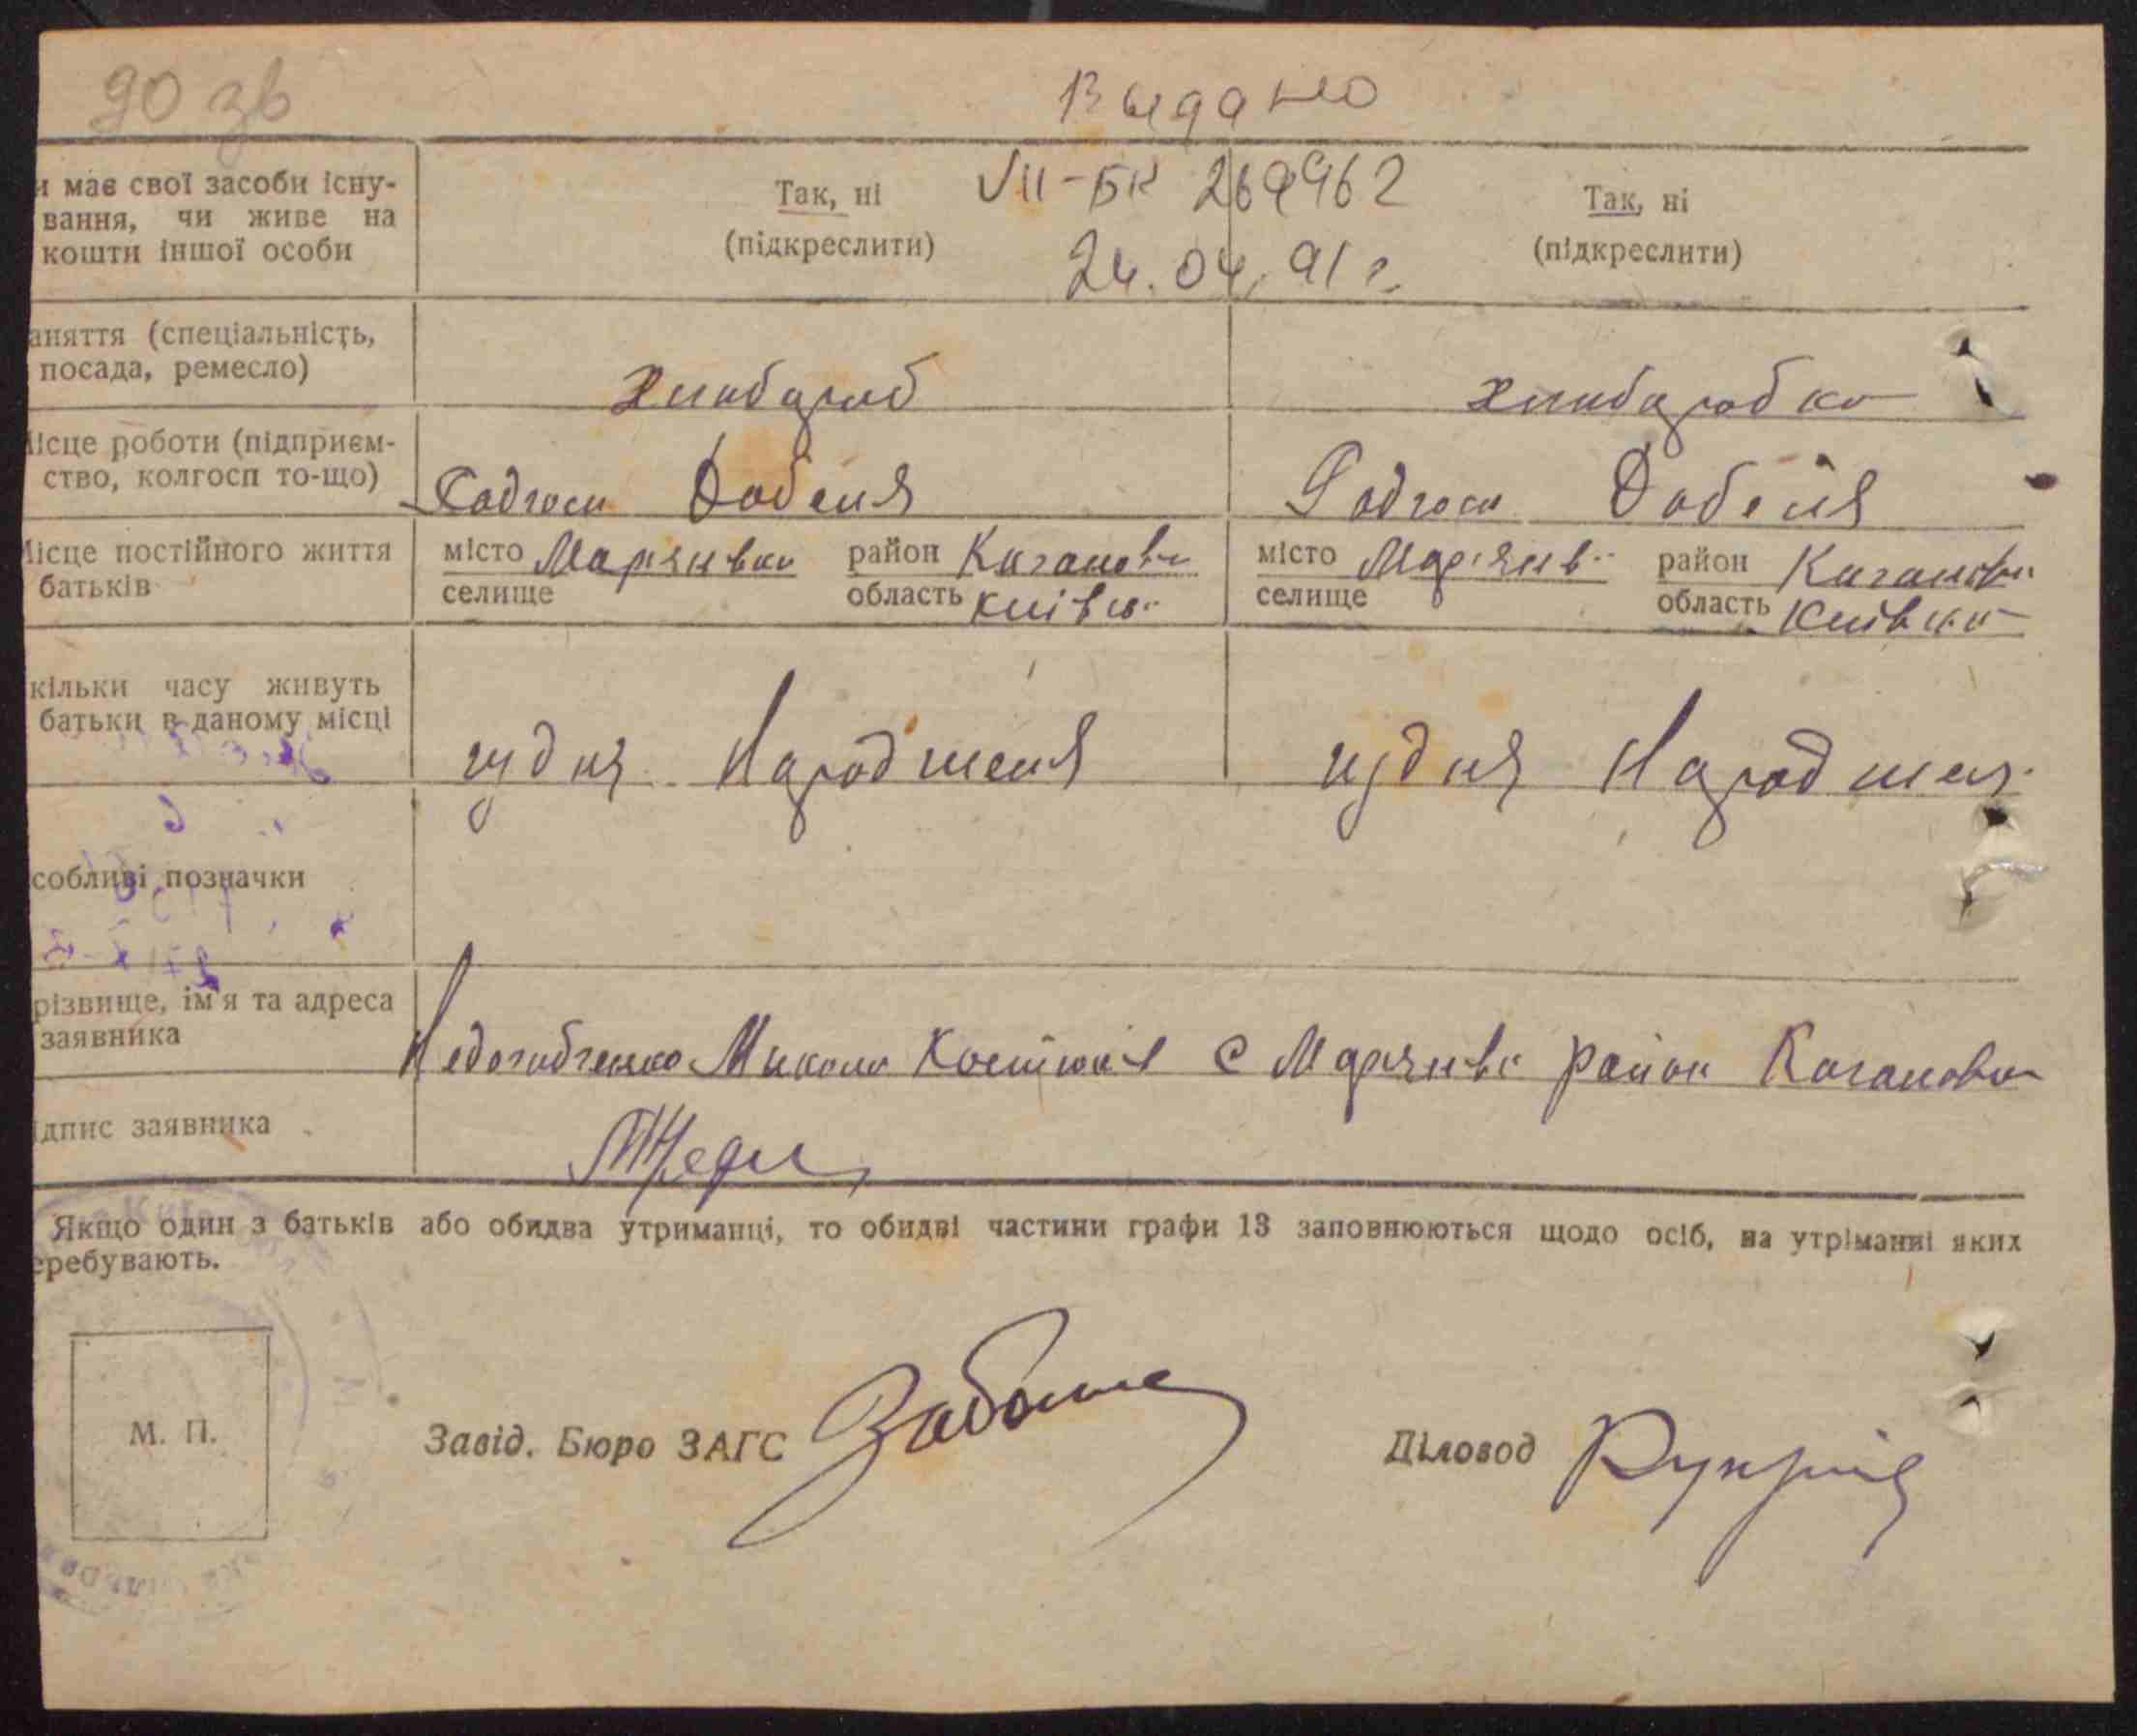 90 зв
Выдано
VII-БК 269962
24.04.91 г.
и має свої засоби існу-
вання, чи живе на
кошти іншої особи
Так, ні
(підкреслити)
Так, ні
(підкреслити)
аняття (спеціальність,
посада, ремесло)
Хлибароб
хлибаробка
Місце роботи (підприєм-
ство, колгосп то-що)
Радгосп
Радгосп
Місце постійного життя
батьків
місто Марянивка район Каганови
селище область київсь
місто Марянив район Каганови
селище область Київська
кільки часу живуть
батьки в даному місці
изд ня Народженя
изд ня Народжен
собливі позначки
різвище, ім'я та адреса
заявника
Микола с Марянивка район Каганови
ідпис заявника
Якщо один з батьків або обидва утриманці, то обидві частини графи 13 заповнюються щодо осіб, на утріманні яких
еребувають.
М. П.
Завід. Бюро ЗАГС
Діловод